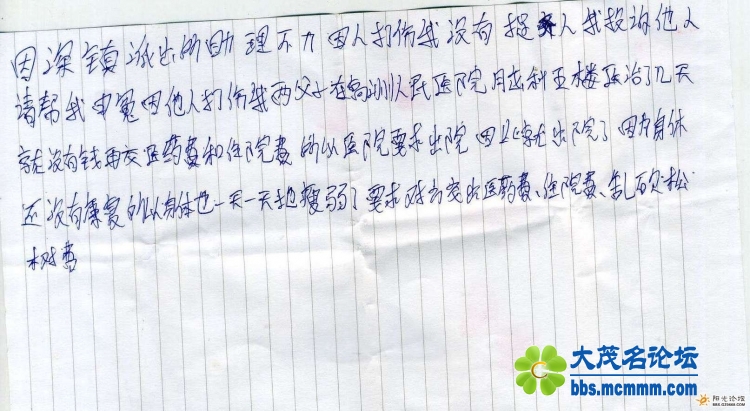 因深镇派出所助理不力 因人打伤我没有捉人我投诉他人
请帮我申冤因他人打伤我两父子在高州人民医院月在科五楼医治了几天
就没有钱再交医药费和住院费所以医院要求出院 因此就出院了 因为身体
还没有康复所以身体也一天一天地瘦弱了要求对方交出医药费、住院费、乱砍松
树费
大茂名论坛
bbs.mcmmm.com
阳光论坛
BBS.GZ0668.COM